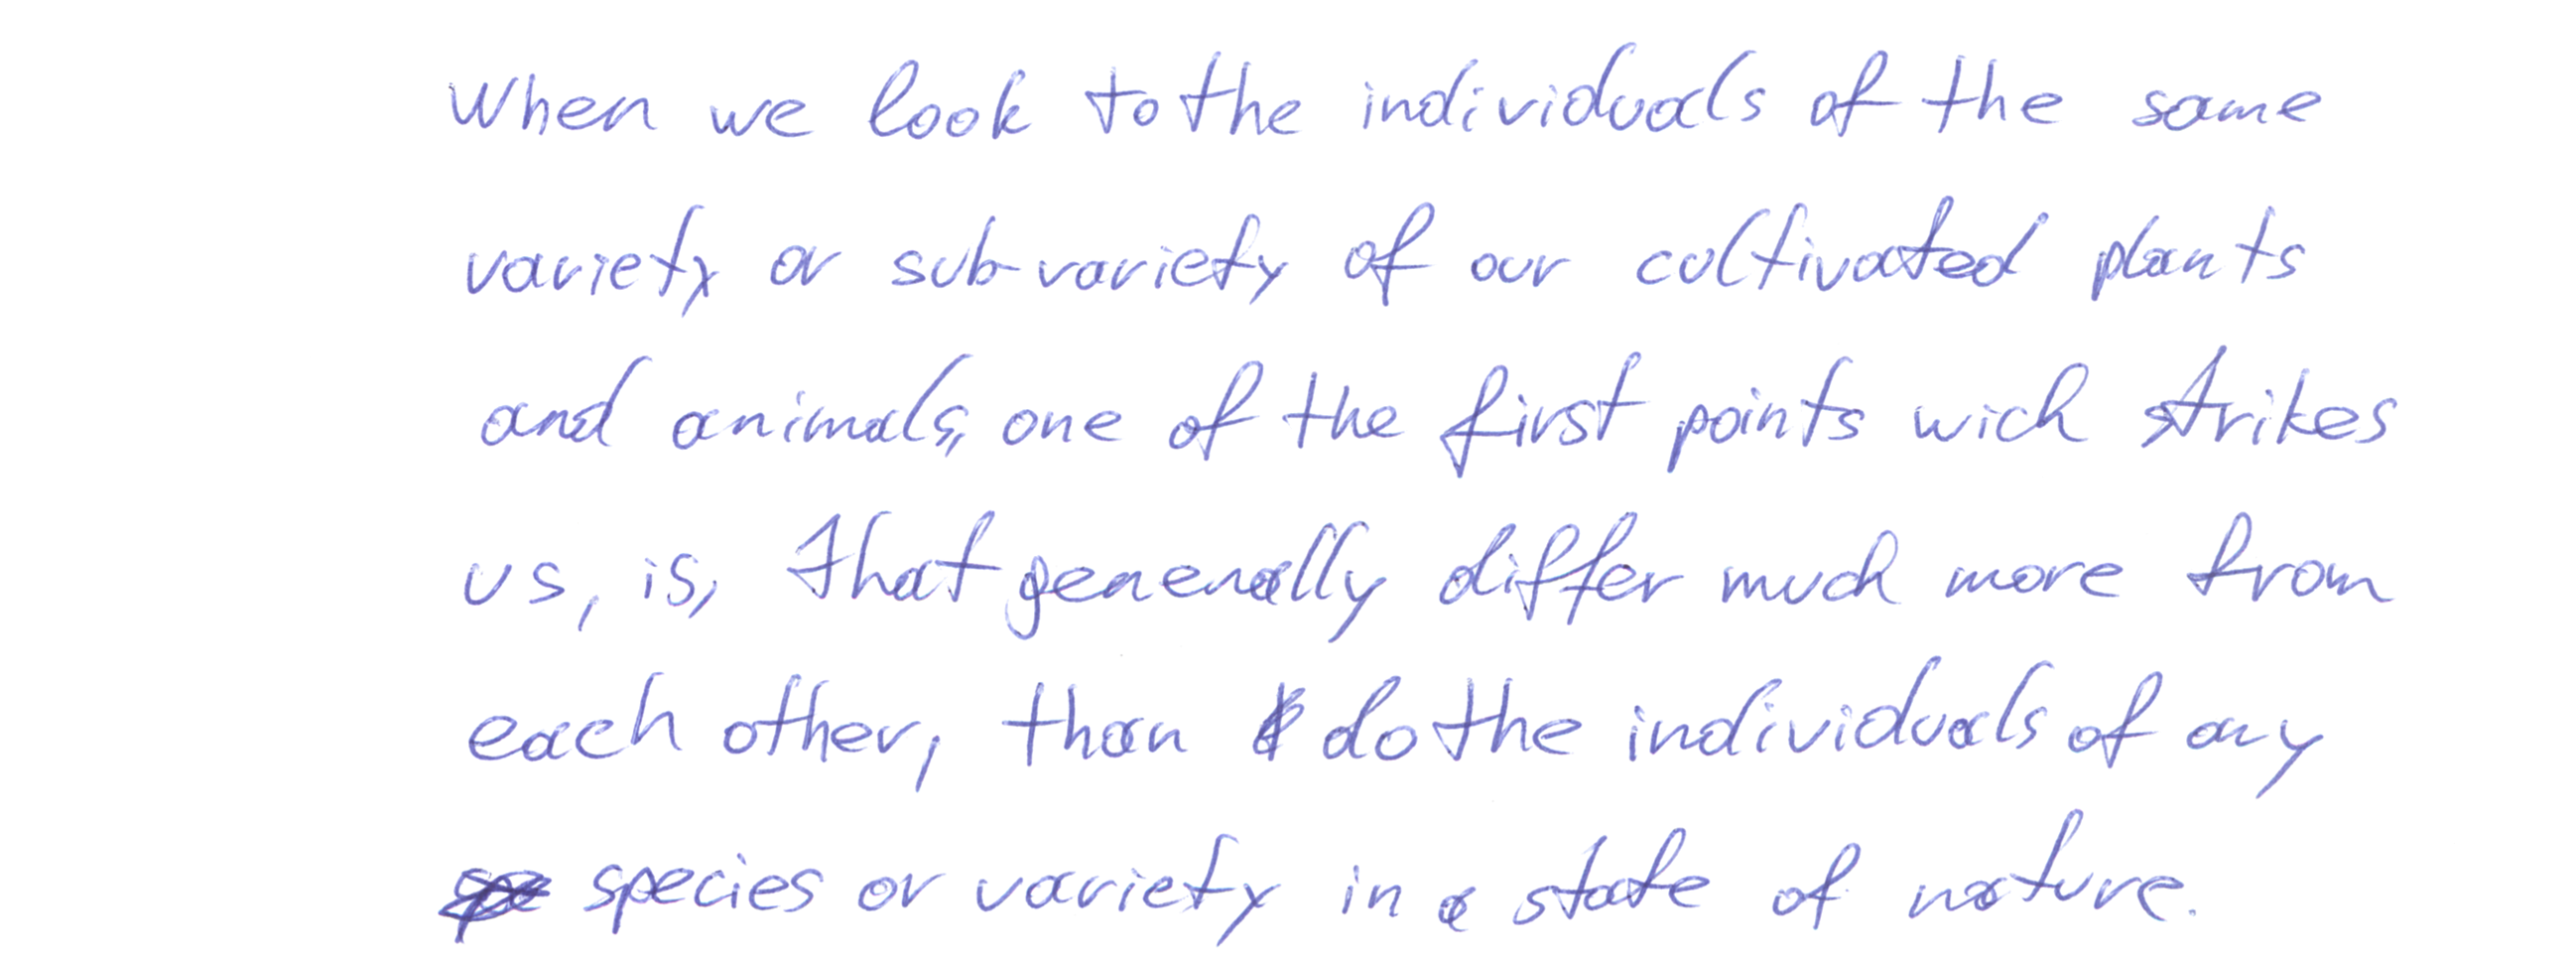 When we look to the individuals of the same
variety or sub-variety of our cultivated plants
and animals, one of the first points wich strikes
us, is, that generally differ much more from
each other, than do the individuals of any
species or variety in a state of nature.